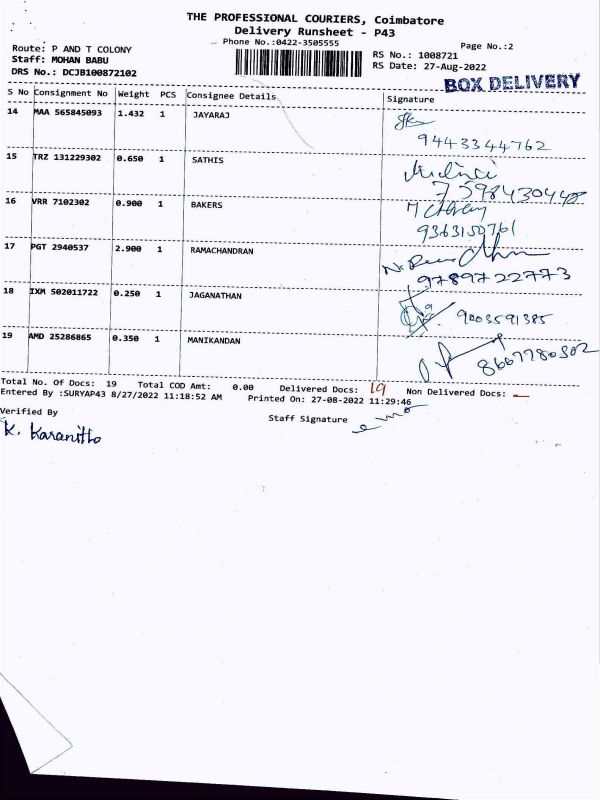 THE PROFESSIONAL COURIERS, Coimbatore
Delivery Runsheet - P43
Phone No.:0422-3505555
Page No.:2
Route: P AND T COLONY
RS No.: 1008721
Staff: MOHAN BABU
RS Date: 27-Aug-2022
DRS No.: DCJB100872102
BOX DELIVERY
S No Consignment No Weight PCS Consignee Details Signature
14 MAA 565845093 1.432 1 JAYARAJ
9443344762
15 TRZ 131229302 0.650 1 SATHIS
7598430448
16 VRR 7102302 0.900 1 BAKERS
9363150761
17 PGT 2940537 2.900 1 RAMACHANDRAN
9789722773
18 IXM 502011722 0.250 1 JAGANATHAN
9003591385
19 AMD 25286865 0.350 1 MANIKANDAN
8667780502
Total No. Of Docs: 19 Total COD Amt: 0.00 Delivered Docs: 19 Non Delivered Docs: —
Entered By :SURYAP43 8/27/2022 11:18:52 AM Printed On: 27-08-2022 11:29:46
Verified By Staff Signature
K.